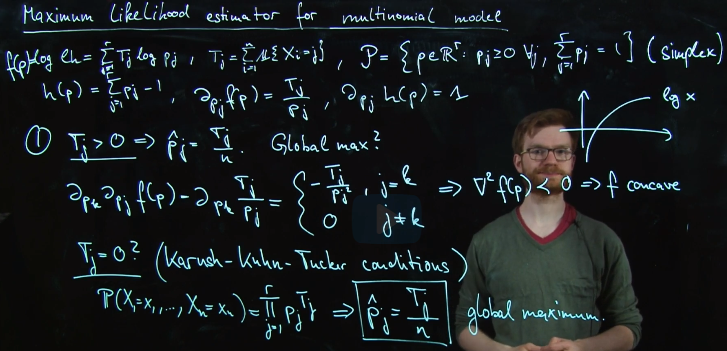 Maximum likelihood estimator for multinomial model
f(p)=log lh = Σ_{j=1}^{r} T_j log p_j , T_j = Σ_{i=1}^{n} 𝟙{X_i=j} , P = {p∈ℝ^r: p_j≥0 ∀j, Σ_{j=1}^{r} p_j = 1} (simplex)
h(p) = Σ_{j=1}^{r} p_j - 1 , ∂_{p_j} f(p) = T_j/p_j , ∂_{p_j} h(p) = 1
log x
① T_j > 0 ⇒ p̂_j = T_j/n . Global max?
∂_{p_k} ∂_{p_j} f(p) - ∂_{p_k} T_j/p_j = { -T_j/p_j² , j=k
0 j≠k
⇒ ∇² f(p) < 0 ⇒ f concave
T_j = 0? (Karush-Kuhn-Tucker conditions)
ℙ(X_1=x_1,..., X_n=x_n) = ∏_{j=1}^{r} p_j^{T_j} ⇒ p̂_j = T_j/n global maximum.